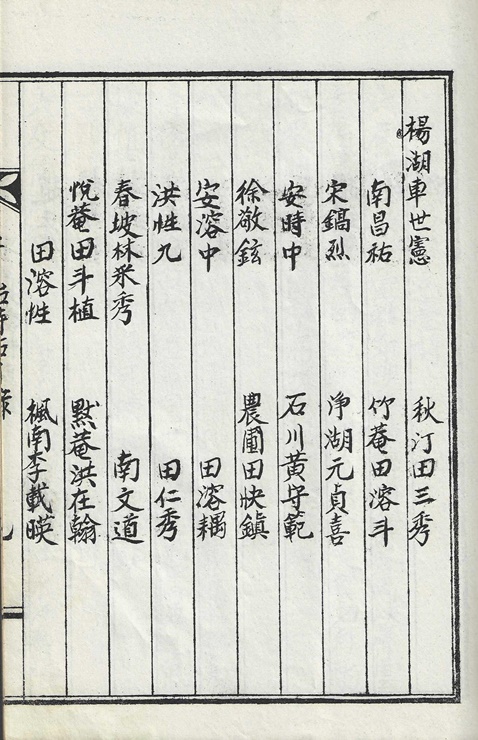 楊湖車世憲 秋汀田三秀
南昌祐 竹菴田溶斗
宋鎬烈 淨湖元貞喜
安時中 石川黃守範
徐敬鉉 農圃田快鎭
安溶中 田溶耦
洪性九 田仁秀
春坡林采秀 南文道
悅菴田斗植 默菴洪在翰
田溶性 楓南李載暎